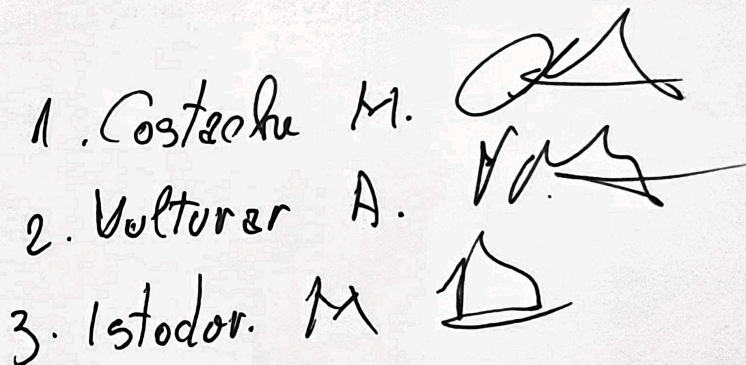 1. Costache M.
2. Vulturar A.
3. Istodor. M